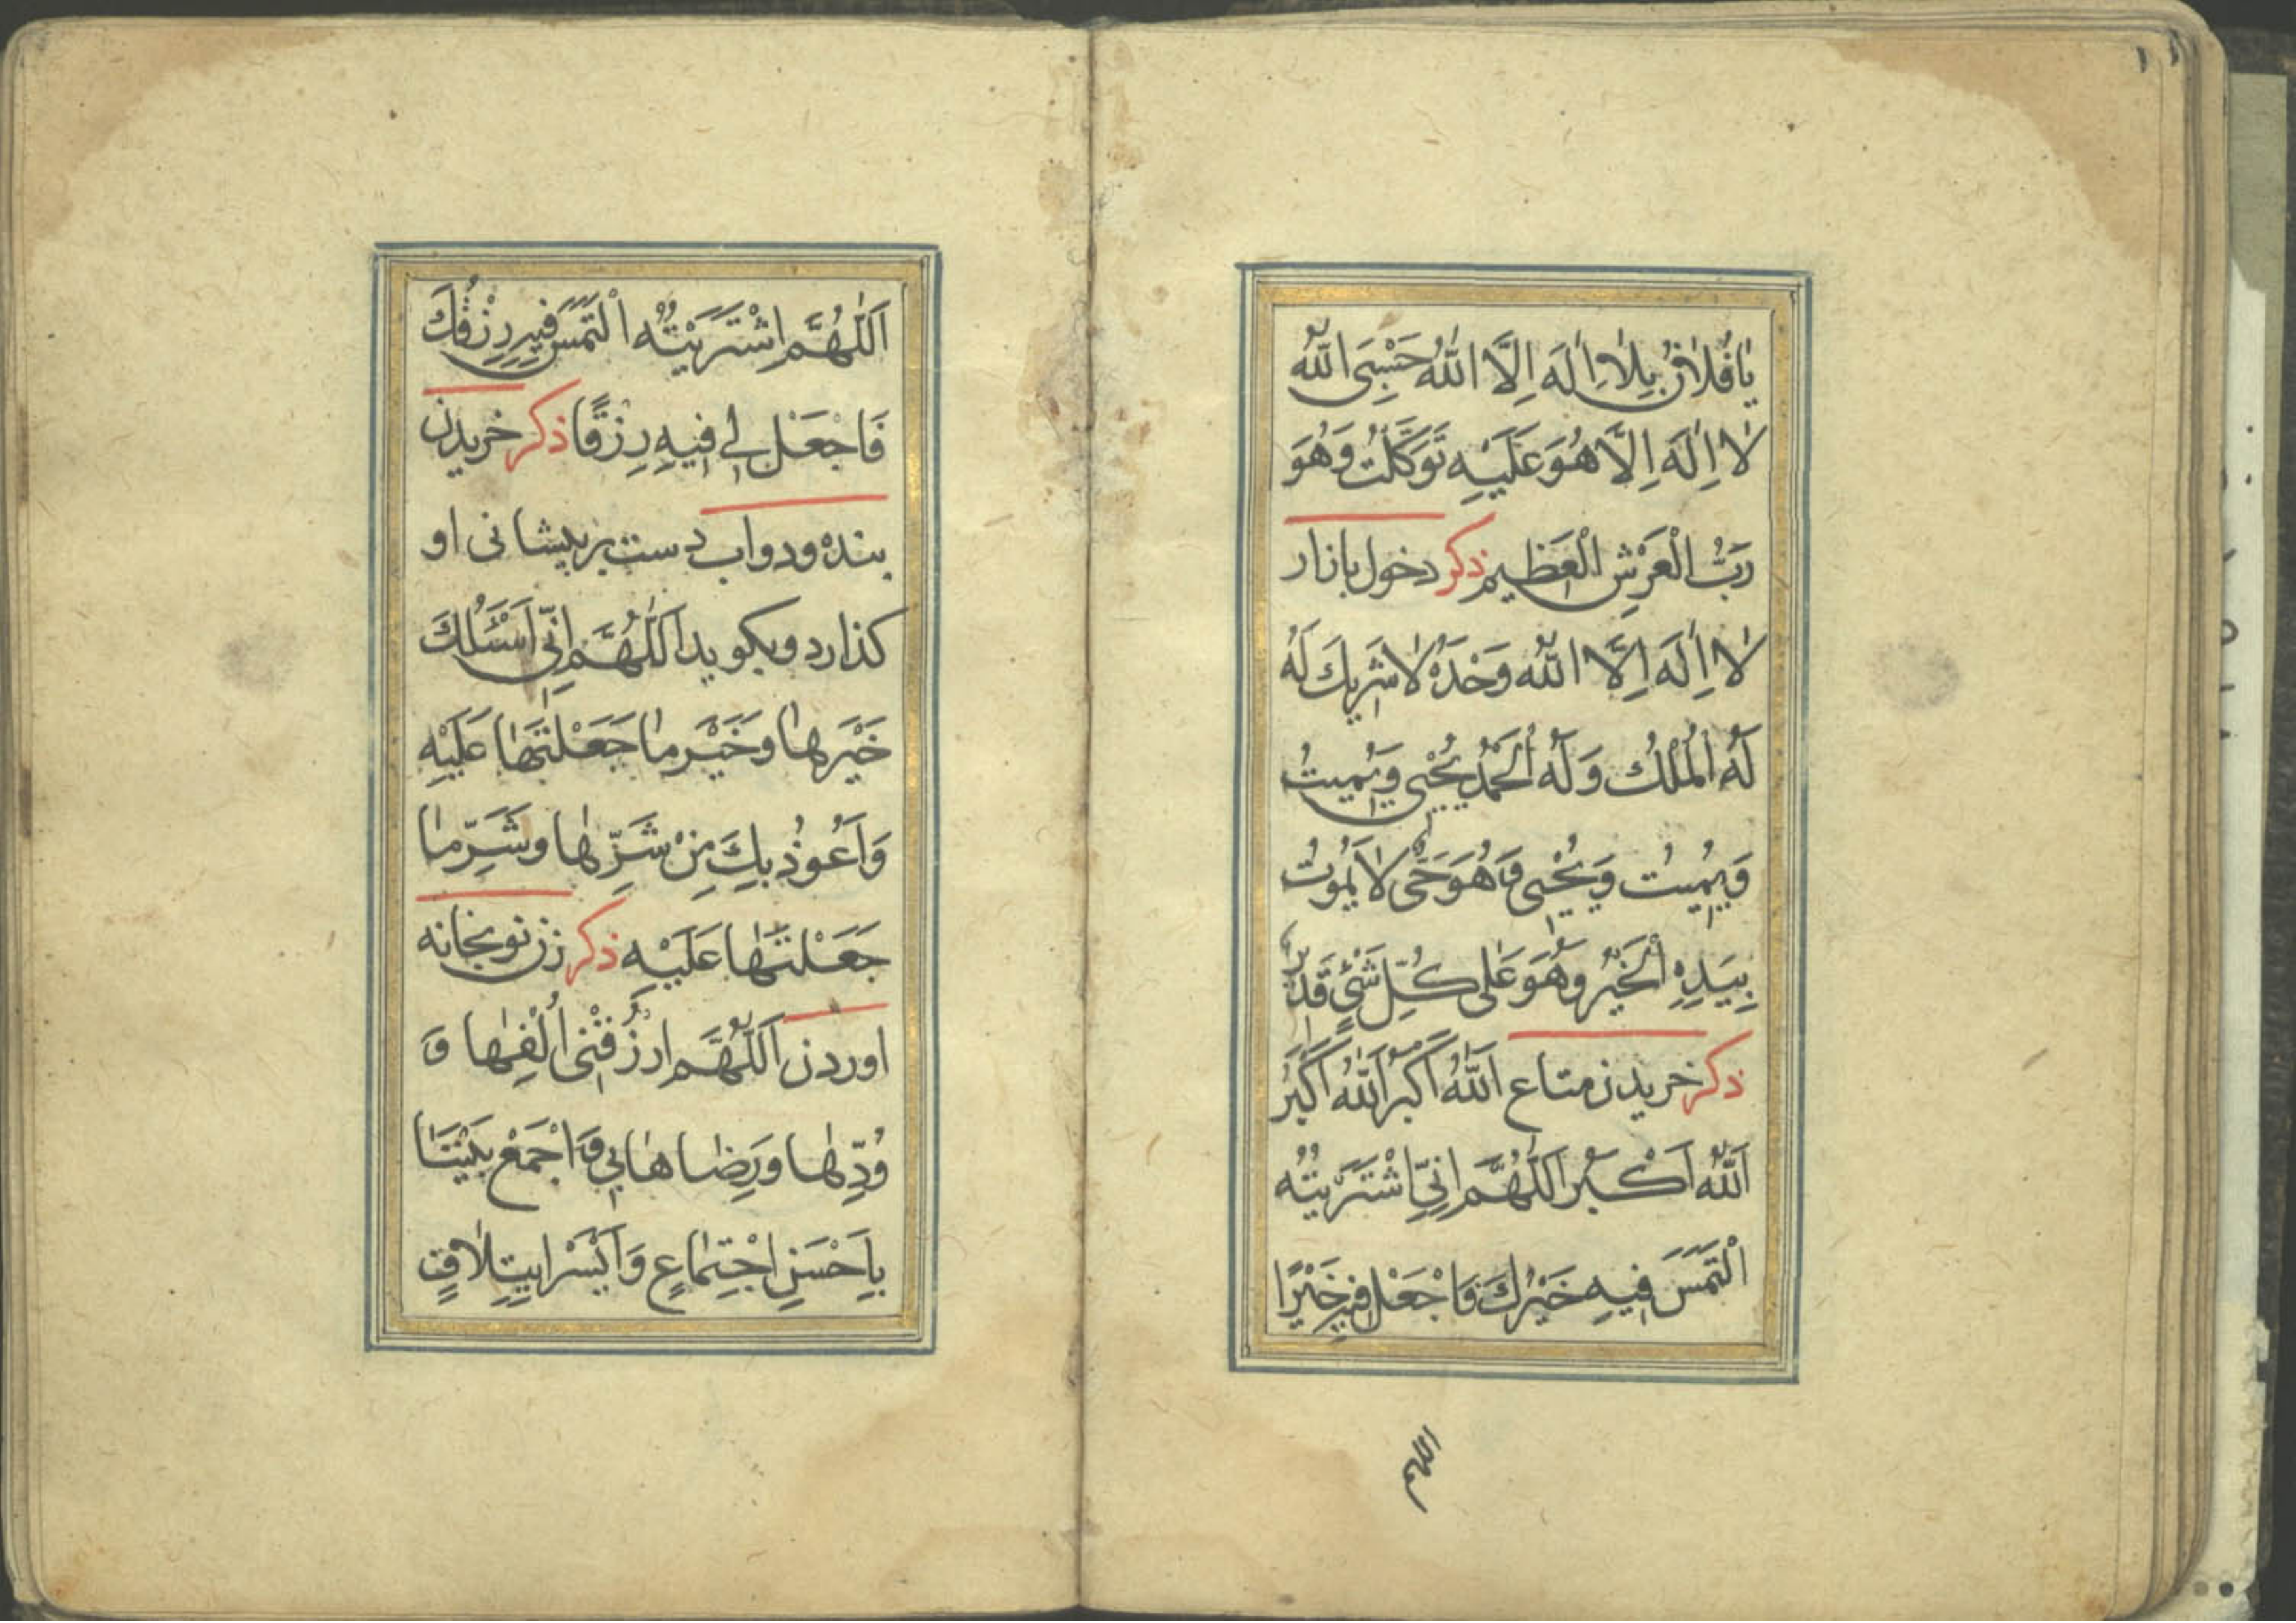 یٰا فُلٰانُ بِلٰا اِلٰهَ اِلَّا اللّٰهُ حَسْبِیَ اللّٰهُ
لٰا اِلٰهَ اِلَّا هُوَ عَلَیْهِ تَوَکَّلْتُ وَهُوَ
رَبُّ الْعَرْشِ الْعَظیمِ ذکر دخول بازار
لٰا اِلٰهَ اِلَّا اللّٰهُ وَحْدَهُ لٰا شَریكَ لَهُ
لَهُ الْمُلْكُ وَلَهُ الْحَمْدُ یُحْیی وَیُمیتُ
وَیُمیتُ وَیُحْیی وَهُوَ حَیٌّ لٰا یَمُوتُ
بِیَدِهِ الْخَیْرُ وَهُوَ عَلٰی کُلِّ شَیْءٍ قَدیرٌ
ذکر خریدن متاع اَللّٰهُ اَکْبَرُ اَللّٰهُ اَکْبَرُ
اَللّٰهُ اَکْبَرُ اَللّٰهُمَّ اِنِّی اشْتَرَیْتُهُ
اَلْتَمِسُ فیهِ خَیْرَكَ فَاجْعَلْ فیهِ خَیْرًا
اللهم
اَللّٰهُمَّ اِشْتَرَیْتُهُ اَلْتَمِسُ فیهِ رِزْقَكَ
فَاجْعَلْ لی فیهِ رِزْقًا ذکر خریدن
بنده ودواب دست برپیشانی او
کذارد وبکوید اَللّٰهُمَّ اِنّی اَسْئَلُكَ
خَیْرَهٰا وَخَیْرَ مٰا جَعَلْتَهٰا عَلَیْهِ
وَاَعُوذُ بِكَ مِنْ شَرِّهٰا وَشَرِّ مٰا
جَعَلْتَهٰا عَلَیْهِ ذکر زن نو بخانه
اوردن اَللّٰهُمَّ ارْزُقْنی اُلْفَهٰا وَ
وُدِّهٰا وَرِضٰاهٰا بی وَاجْمَعْ بَیْنَنٰا
بِاَحْسَنِ اجْتِمٰاعٍ وَاَیْسَرِ ایتِلٰافٍ